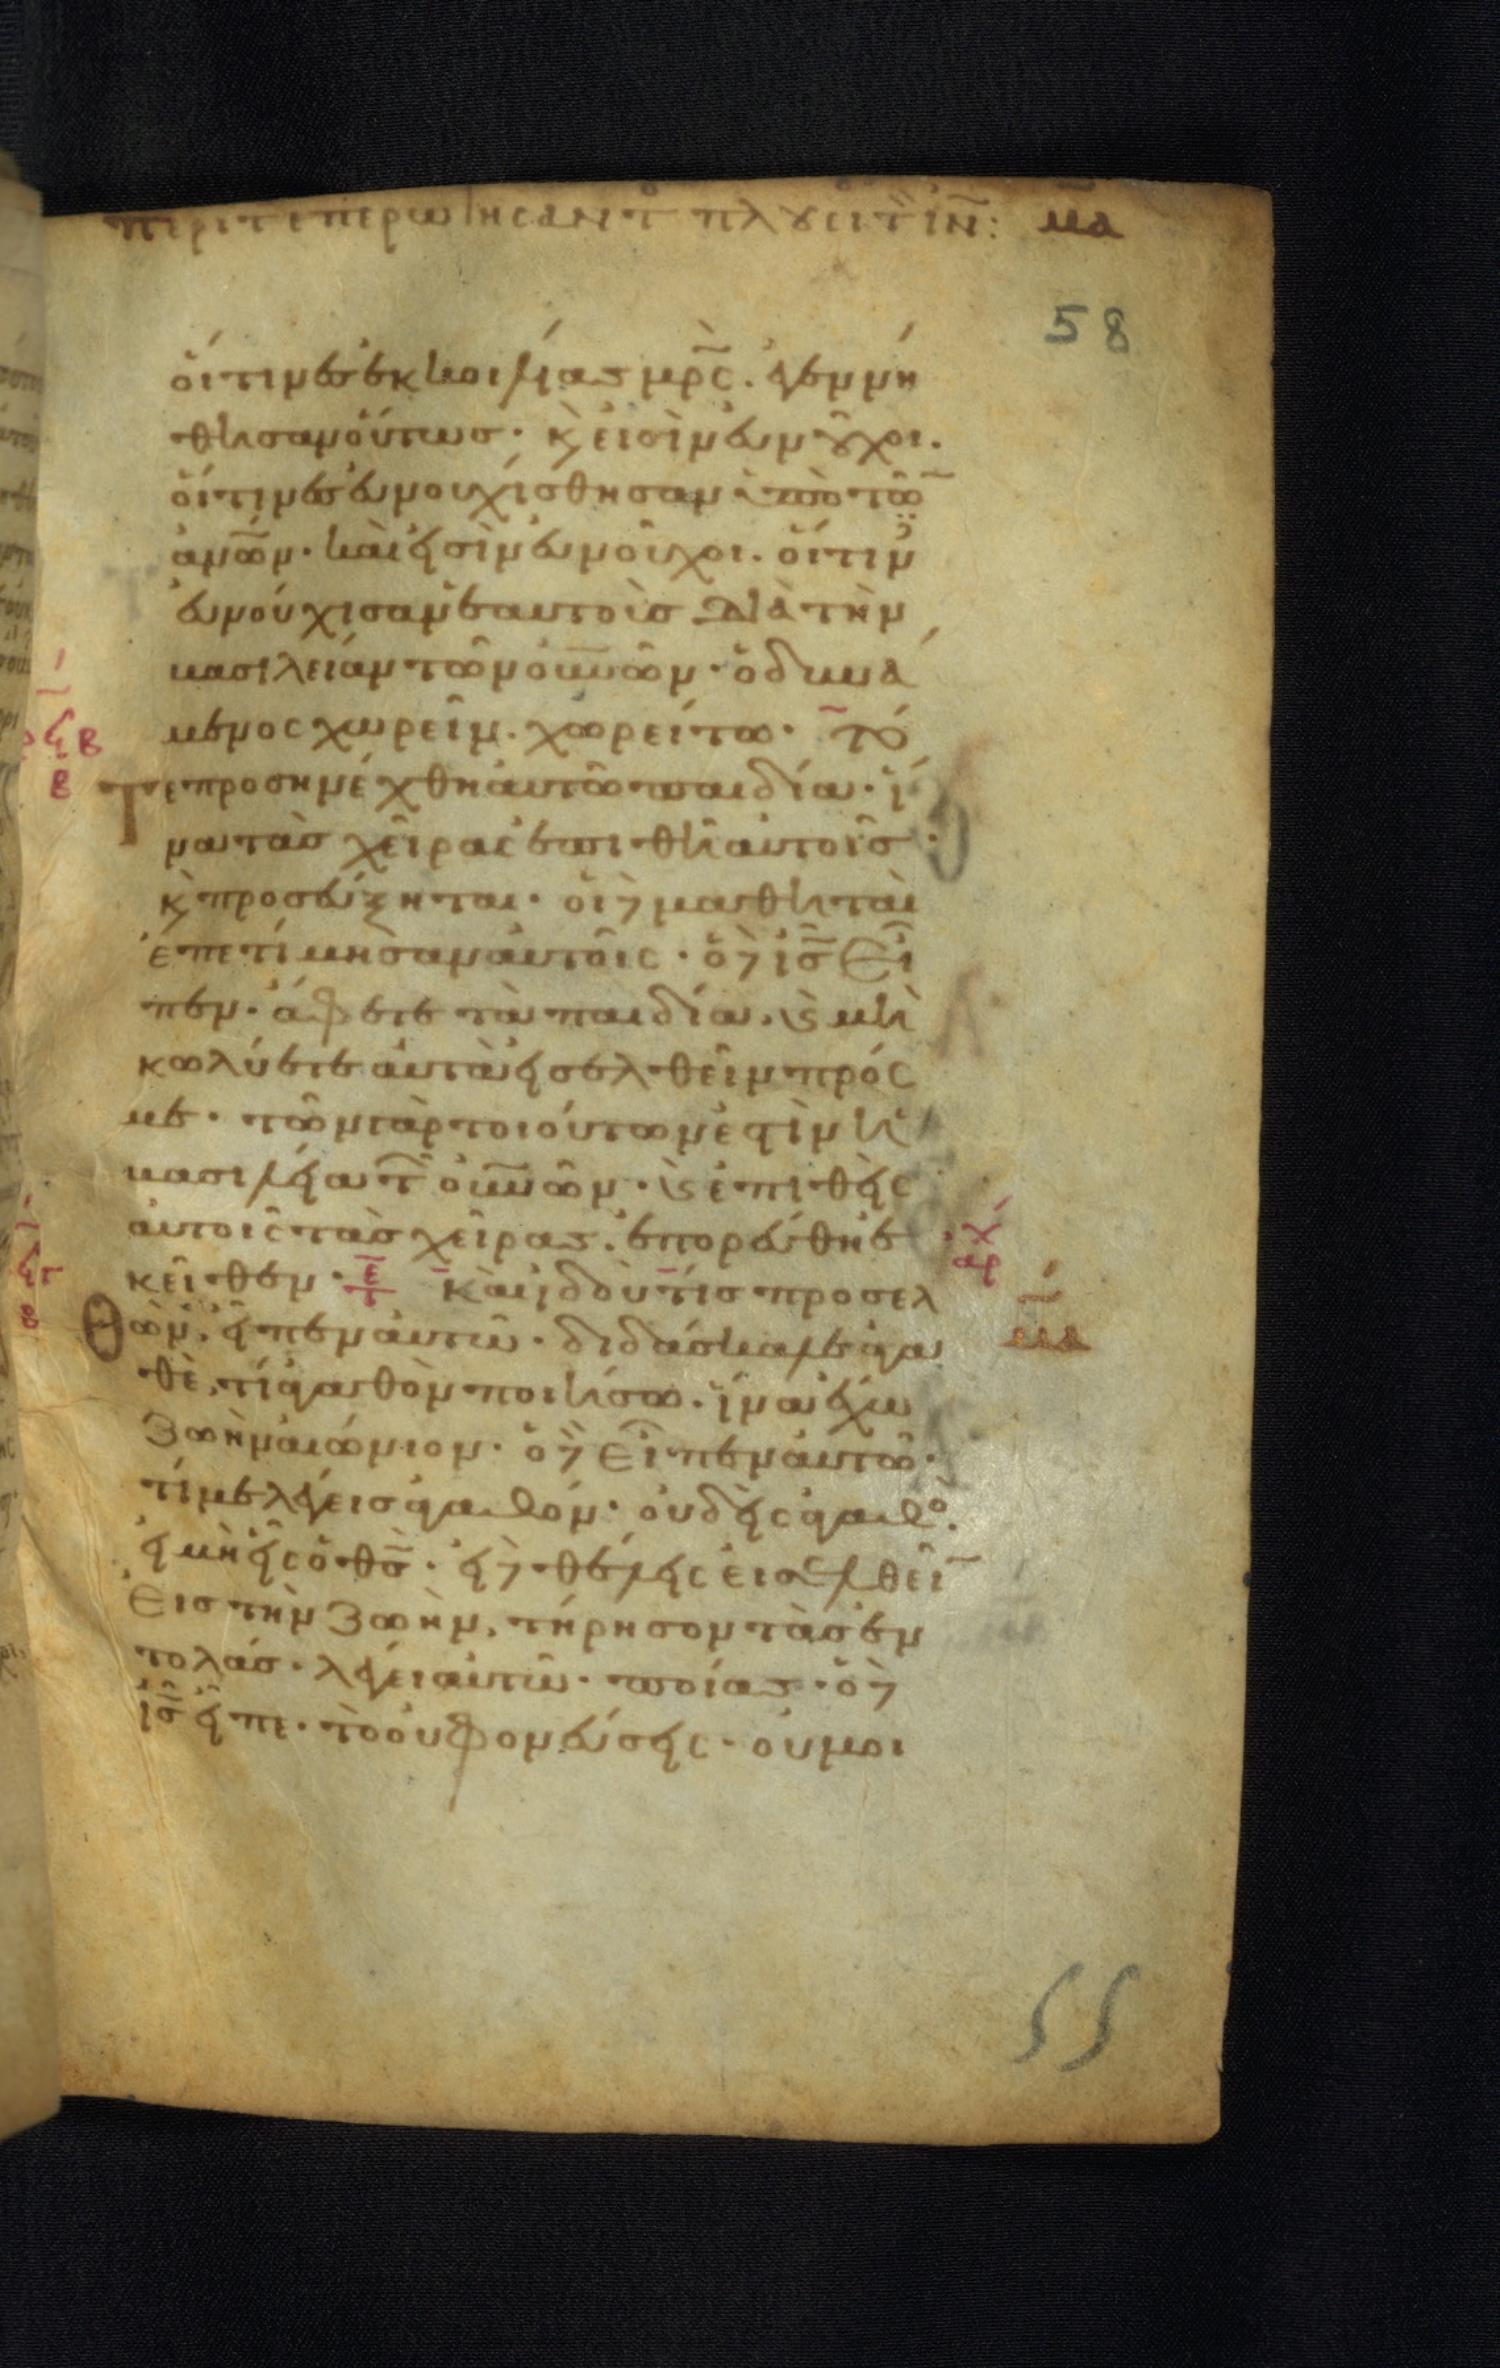 περι τ επερωτησαντ πλουσι τ ιν: μα
58
οἵτινες ἐκ κοιλίας μρ̅ς. ἐγεννή
θησαν οὕτως· κ̀ εἰσὶν εὐνοῦχοι.
οἵτινες εὐνουχίσθησαν ἀπὸ τῶ̅
ἀνω̅ν· καὶ εἰσὶν εὐνοῦχοι. οἵτιν
εὐνούχισαν ἑαυτοὺς διὰ τὴν
βασιλείαν τῶν οὐνῶ̅ν· ὁ δυνά
μενος χωρεῖν. χωρείτω· τό
τε προσηνέχθη αὐτῶ παιδία· ἵ
να τὰς χεῖρας ἐπιθῆ αὐτοῖς·
κ̀ προσεύξηται· οἱ δὲ μαθηταὶ
ἐπετίμησαν αὐτοῖς· ὁ δὲ ι̅ς εἶ
πεν· ἄφετε τὰ παιδία. κ̀ μὴ
κωλύετε αὐτὰ εἰσελθεῖν πρός
με· τῶν γὰρ τοιούτων ἐστὶν ἡ
βασιλεία τ οὐνῶ̅ν· κ̀ ἐπιθεὶς
αὐτοῖς τὰς χεῖρας. ἐπορεύθη ἐ
κεῖθεν· Καὶ ἰδοὺ τίς προσελ
θὼν, εἶπεν αὐτῶ· διδάσκαλε ἀγα
θὲ, τί ἀγαθὸν ποιήσω. ἵνα ἔχω
ζωὴν αἰώνιον· ὁ δὲ εἶπεν αὐτῶ·
τί με λέγεις ἀγαθόν· οὐδεὶς ἀγαθο.
εἰ μὴ εἷς ὁ θ̅ς· εἰ δὲ θέλεις εἰσελθεῖ̅
εἰς τὴν ζωὴν, τήρησον τὰς ἐν
τολάς· λέγει αὐτῶ· ποίας· ὁ δὲ
ι̅ς εἶπε· τὸ οὐ φονεύσεις· οὐ μοι
μα
55